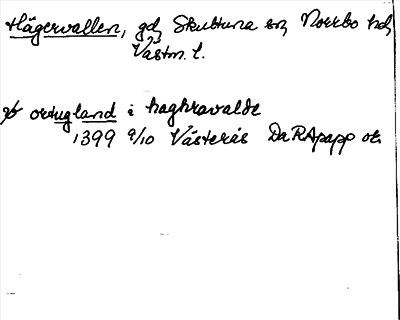 Hägervallen, gd, Skultuna sn, Norrbo hd,
Västm. l.
ortugland i haghravalde
1399 9/10 Västerås DaRApapp or.